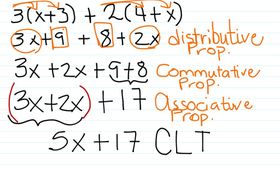 3(x+3) + 2(4+x)
3x+9 + 8+2x distributive prop.
3x + 2x + 9+8 Commutative prop.
(3x+2x) + 17 Associative prop.
5x + 17 CLT